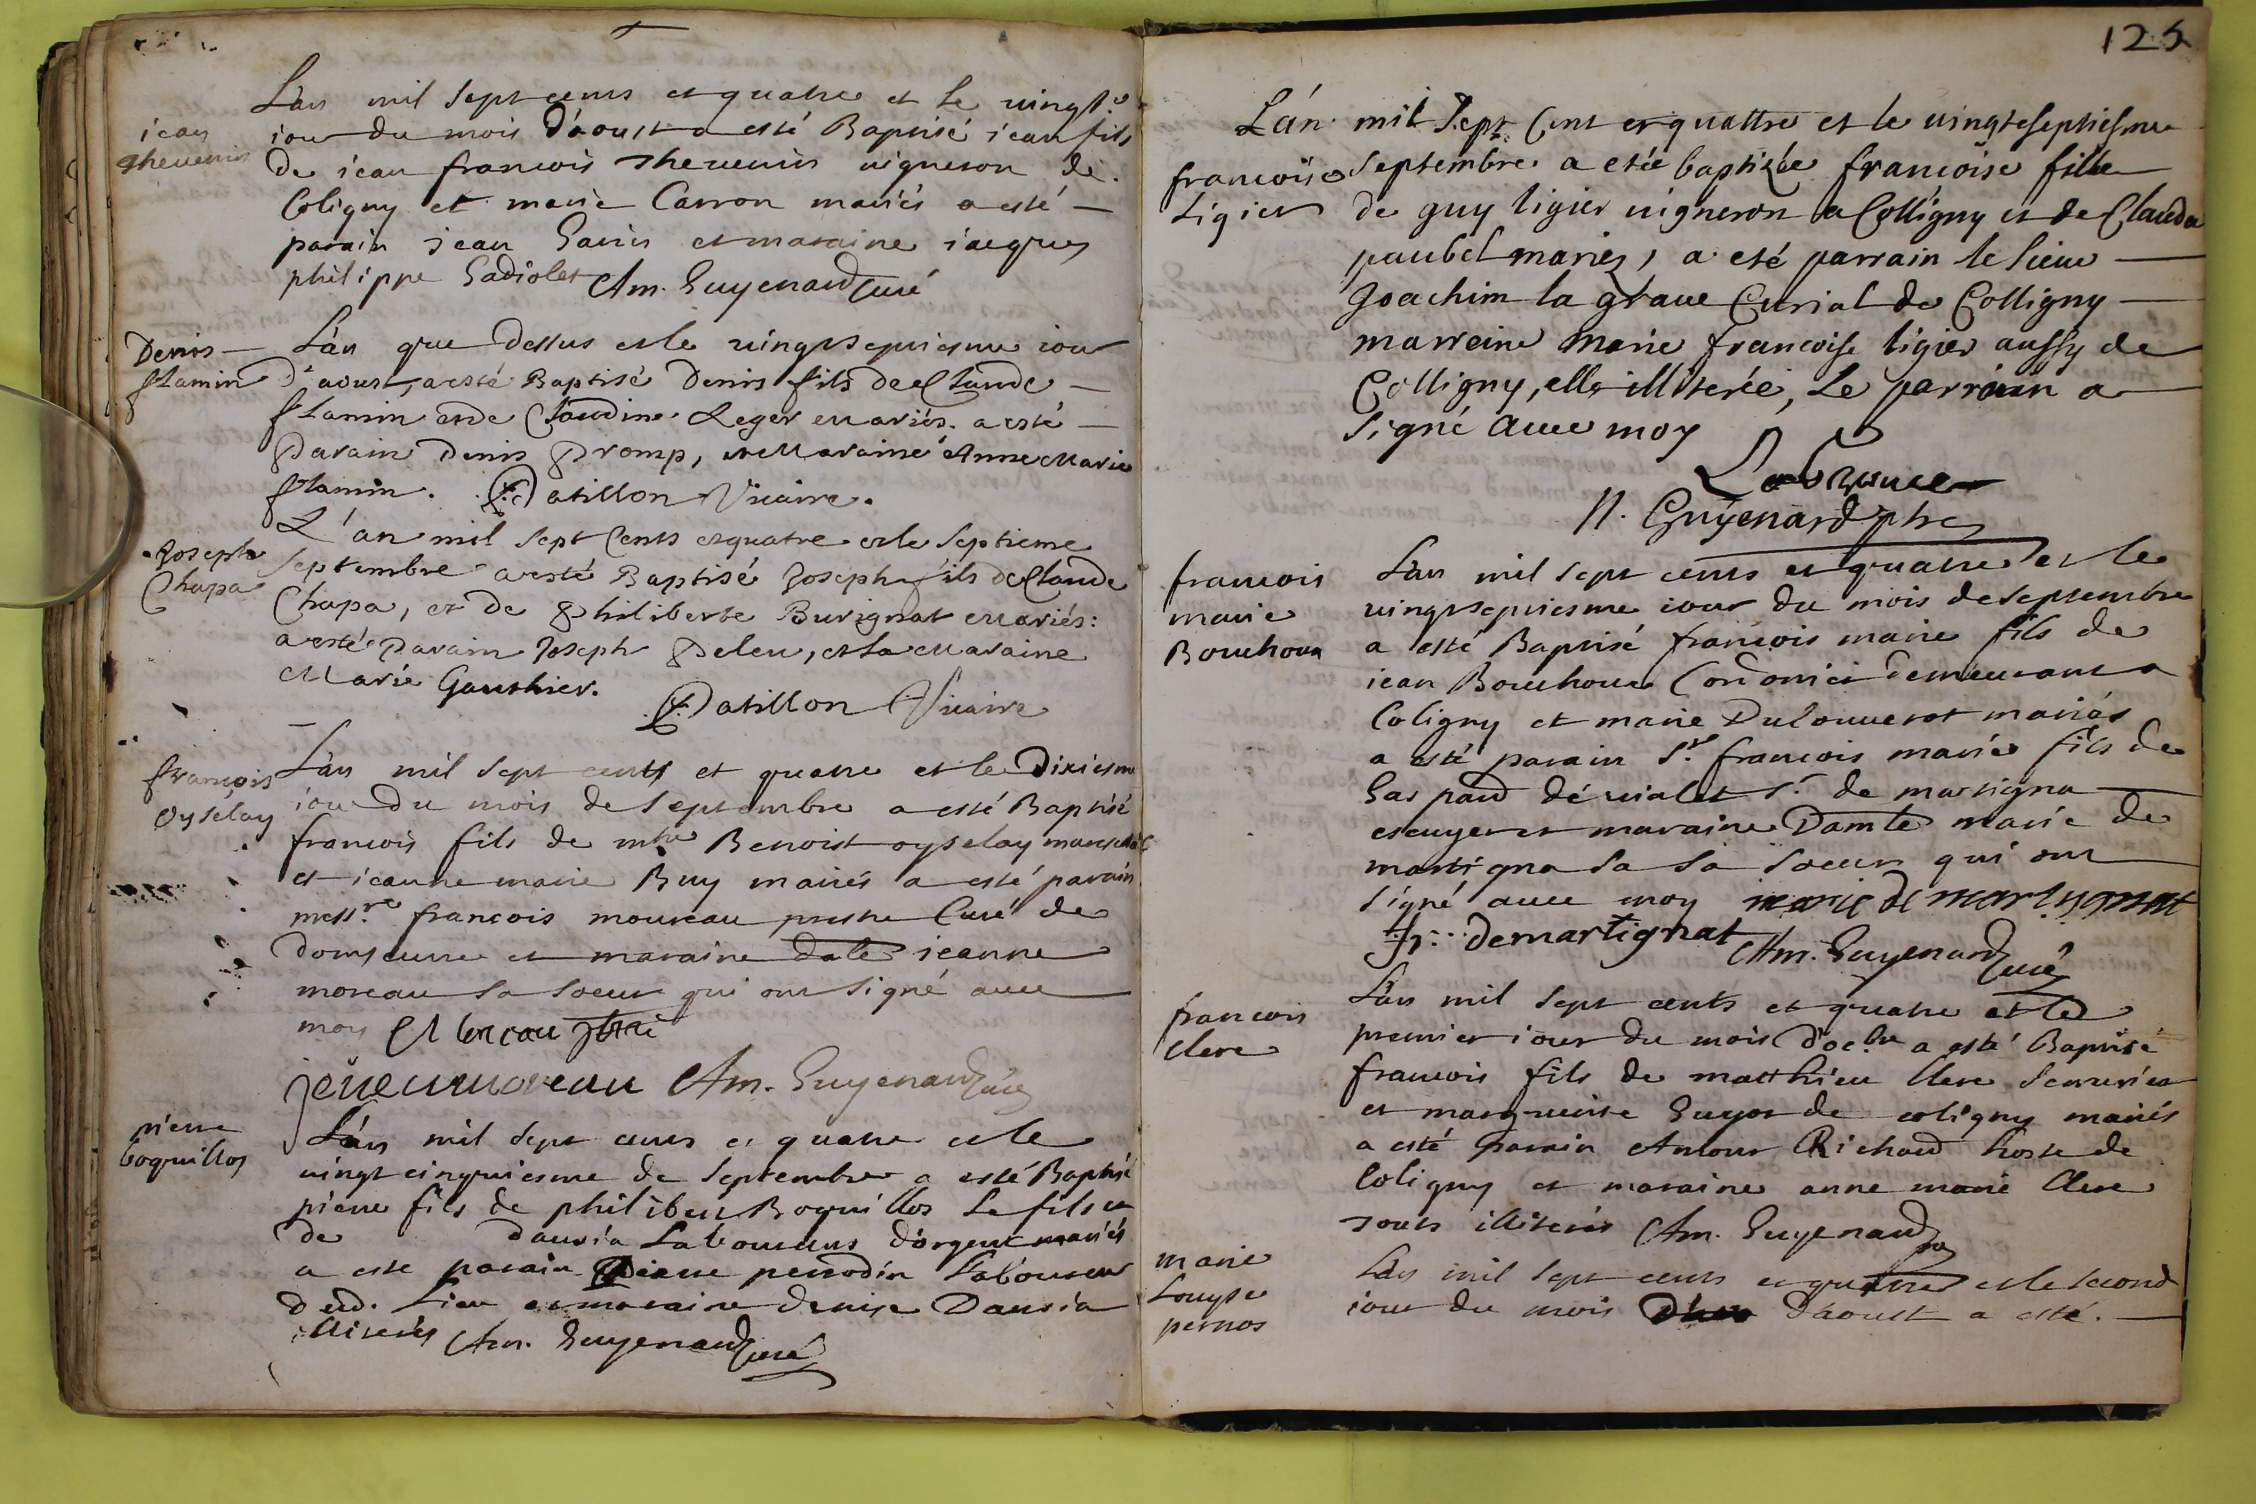 jean
thevenin
L'an mil sept cents et quatre et le vingt.e
iour du mois d'aoust a esté Baptisé jean fils
de jean francois thevenin vigneron de
Coligny et marie Carron mariés a esté
parain jean Gavin et maraine jacques
philippe Gadiolet Am. Guyenard Curé
Denis
flamin
L'an que dessus et le vingtsepiesme iour
d'aoust, a esté Baptisé Denis fils de Claude
flamin et de Claudine Leger mariés. a esté
Parain Denis Promp, et Maraine Anne Marie
flamin. Patillon Vicaire.
Joseph
Chapa
L'an mil sept Cents et quatre et le septieme
septembre a esté Baptisé Joseph fils de Claude
Chapa, et de Philiberte Burignat mariés:
a esté Parain Joseph Peleu, et la Maraine
Marie Gauthier.
Patillon Vicaire
françois
oyselay
L'an mil sept cents et quatre et le Dixiesme
iour du mois de septembre a esté Baptisé
francois fils de mtre Benoist oyselay mareschal
et jeanne marie Buy mariés a esté parain
messre francois moureau prestre Curé de
domseure et maraine dalle jeanne
moreau sa soeur qui ont signé avec
moy Moreau ptre
jeñe moreau Am. Guyenard Curé
pierre
boquillos
L'an mil sept cents et quatre et le
vingt cinquiesme de septembre a esté Baptisé
pierre fils de philibert Boquillos le fils et
de dauvia Laboureurs d'orgent mariés
a esté parain Pierre perrodin Laboureur
dud. Lieu et maraine denise Dauvia
illiterés Am. Guyenard Curé
125
françoise
Ligier
L'an mil sept Cent et quattre et le vingtseptiesme
septembre a estée baptizée francoise fille
de guy ligier vigneron a Colligny et de Clauda
paubel mariez, a eté parrain le sieur
Joachim la graue Curial de Colligny
marreine marie francoise ligier aussy de
Colligny, elle illiterée, Le parrain a
signé avec moy
LaGraue
N. Guyenard ptre
francois
marie
Bouchoux
L'an mil sept cents et quatre et le
vingtsepiesme iour du mois de septembre
a esté Baptisé françois marie fils de
jean Bouchoux Cordonier demeurant a
Coligny et marie Dulouverot mariés
a esté parain Sr. francois marie fils de
Gaspard dévialet sr. de martigna
escuyer et maraine Damlle marie de
martigna sa soeur qui ont
signé avec moy marie de martygnat
fr: demartignat Am. Guyenard Curé
francois
clere
L'an mil sept cents et quatre et le
premier iour du mois d'oc.bre a esté Baptisé
francois fils de matthieu Clere serrurier
et marguerite Guyot de coligny mariés
a esté parain Antour Richard hoste de
Coligny et maraine anne marie Clere
touts illiterés Am. Guyenard
marie
Louyse
pernos
L'an mil sept cents et quatre et le second
iour du mois d'aoust a esté.